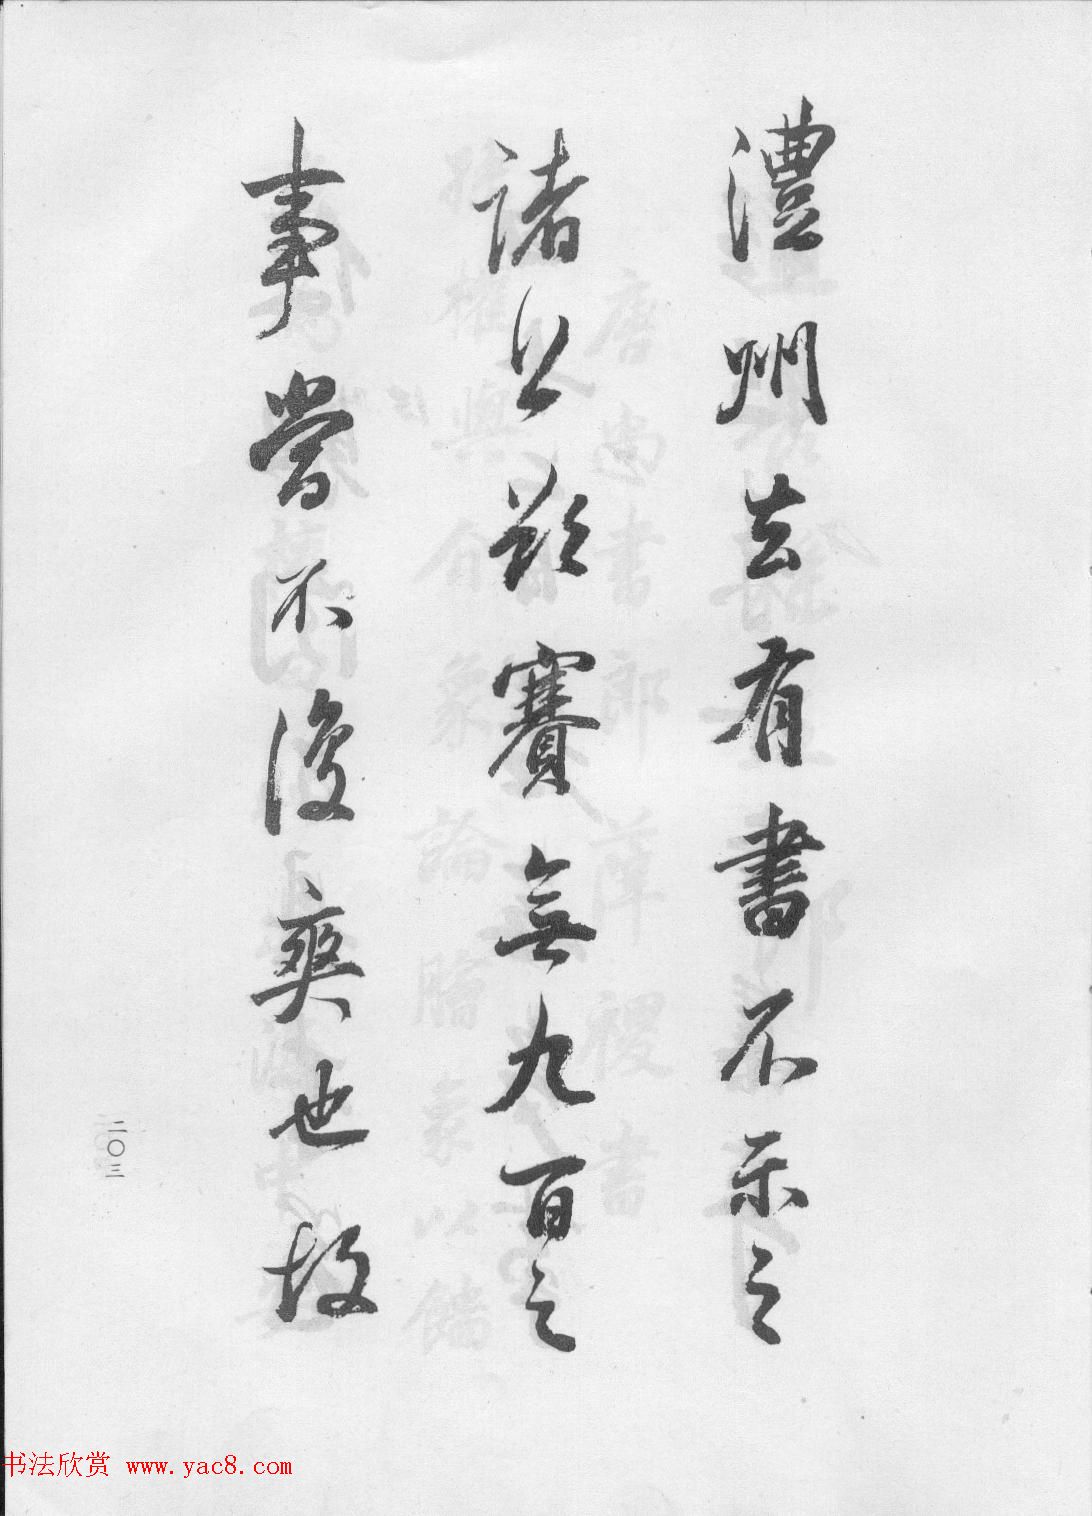 澧州去有書不示之
諸公欲賽無九百之
事嘗不復爽也故
二〇三
书法欣赏 www.yac8.com